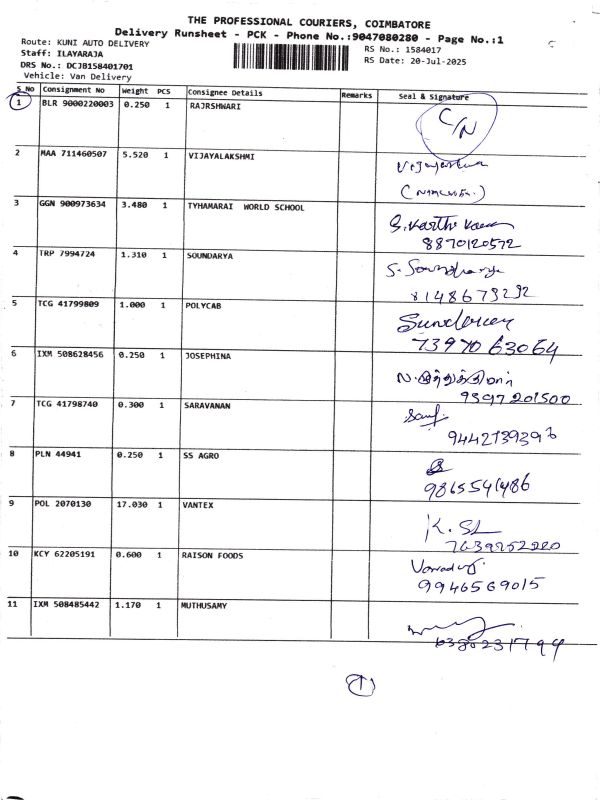 THE PROFESSIONAL COURIERS, COIMBATORE
Delivery Runsheet - PCK - Phone No.:9047080280 - Page No.:1
Route: KUNI AUTO DELIVERY
RS No.: 1584017
Staff: ILAYARAJA
RS Date: 20-Jul-2025
DRS No.: DCJB158401701
Vehicle: Van Delivery
S.No Consignment No Weight PCS Consignee Details Remarks Seal & Signature
1 BLR 9000220003 0.250 1 RAJRSHWARI C/N
2 MAA 711460507 5.520 1 VIJAYALAKSHMI
3 GGN 900973634 3.480 1 TYHAMARAI WORLD SCHOOL
8870120572
4 TRP 7994724 1.310 1 SOUNDARYA
8148673292
5 TCG 41799809 1.000 1 POLYCAB
7397063064
6 IXM 508628456 0.250 1 JOSEPHINA
9397201500
7 TCG 41798740 0.300 1 SARAVANAN
8 PLN 44941 0.250 1 SS AGRO
9865541486
9 POL 2070130 17.030 1 VANTEX
K. SL
10 KCY 62205191 0.600 1 RAISON FOODS
9946569015
11 IXM 508485442 1.170 1 MUTHUSAMY
6380231794
1